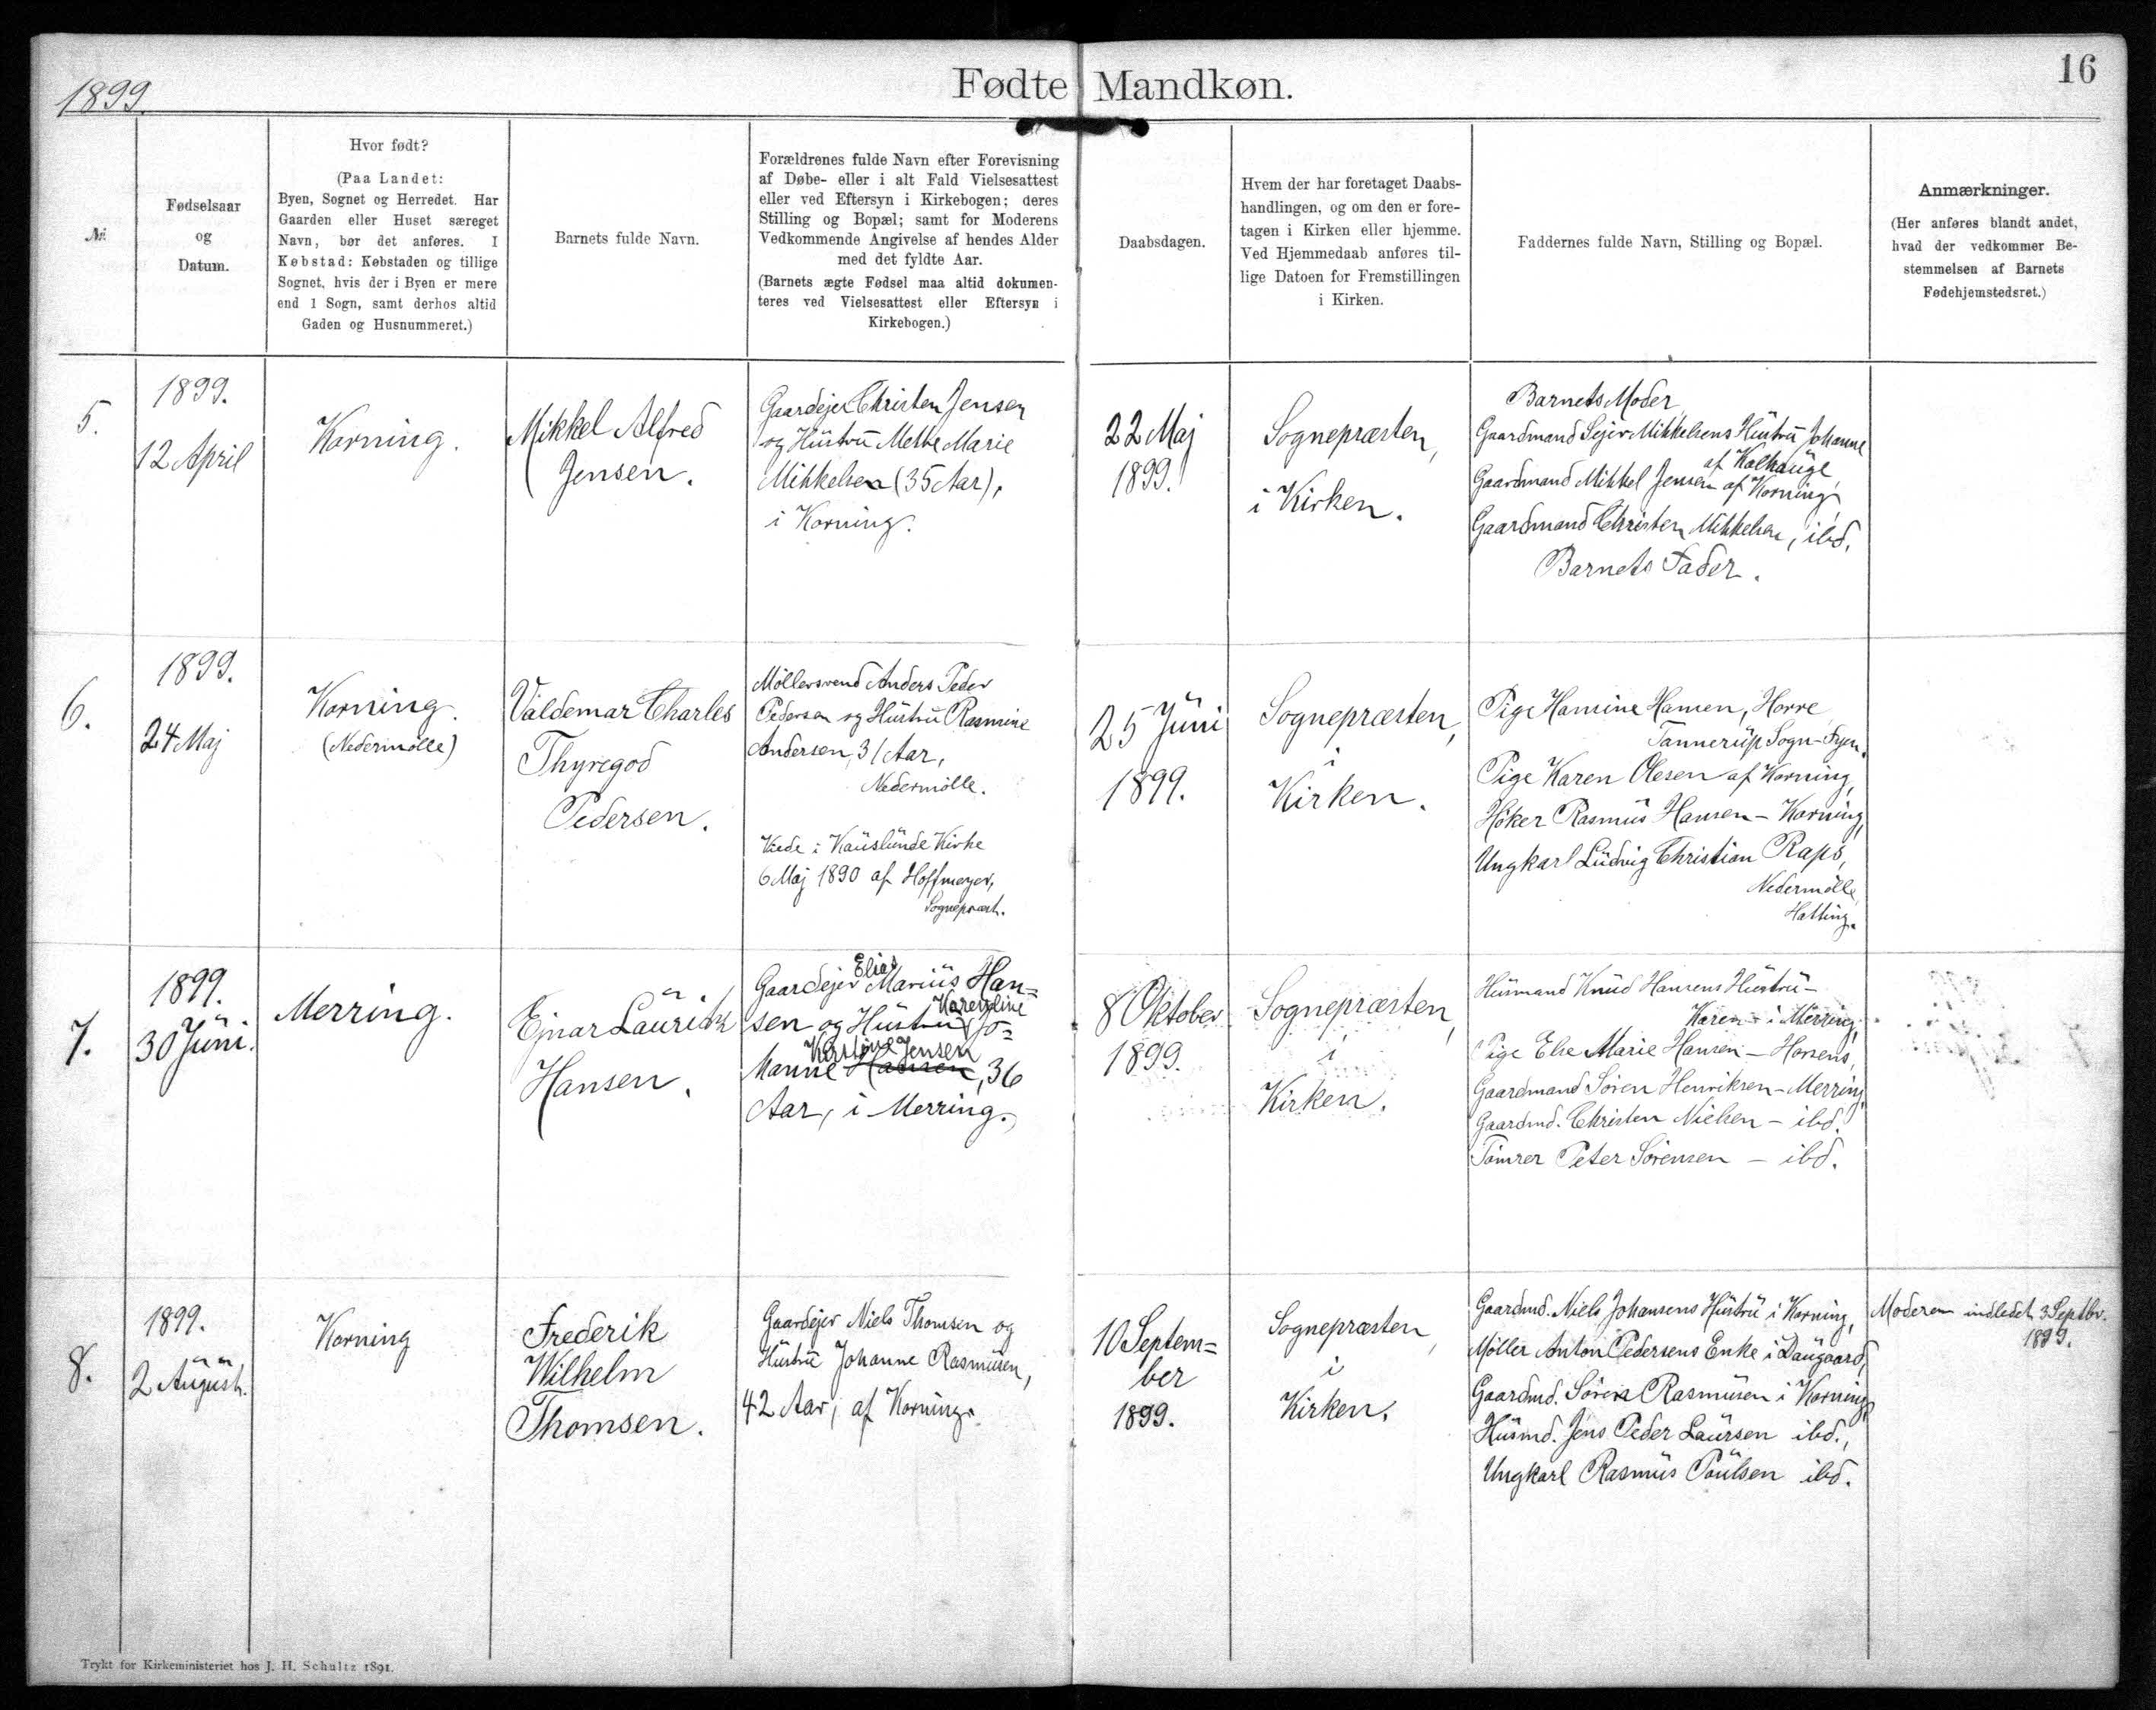 1899.
Fødte Mandkøn.
16
№
Fødselsaar
og
Datum.
Hvor født?
(Paa Landet:
Byen, Sognet og Herredet. Har
Gaarden eller Huset særeget
Navn, bør det anføres. I
Købstad: Købstaden og tillige
Sognet, hvis der i Byen er mere
end 1 Sogn, samt derhos altid
Gaden og Husnummeret.)
Barnets fulde Navn.
Forældrenes fulde Navn efter Forevisning
af Døbe- eller i alt Fald Vielsesattest
eller ved Eftersyn i Kirkebogen; deres
Stilling og Bopæl; samt for Moderens
Vedkommende Angivelse af hendes Alder
med det fyldte Aar.
(Barnets ægte Fødsel maa altid dokumen-
teres ved Vielsesattest eller Eftersyn i
Kirkebogen.)
Daabsdagen.
Hvem der har foretaget Daabs-
handlingen, og om den er fore-
tagen i Kirken eller hjemme.
Ved Hjemmedaab anføres til-
lige Datoen for Fremstillingen
i Kirken.
Faddernes fulde Navn, Stilling og Bopæl.
Anmærkninger.
(Her anføres blandt andet,
hvad der vedkommer Be-
stemmelsen af Barnets
Fødehjemstedsret.)
5.
1899.
12 April
Korning.
Mikkel Alfred
Jensen.
Gaardejer Christen Jensen
og Hustru Mette Marie
Mikkelsen (35 Aar),
i Korning.
22 Maj
1899.
Sognepræsten,
i Kirken.
Barnets Moder
Gaardmand Sejer Mikkelsens Hustru Johanne
af Kalhauge,
Gaardmand Mikkel Jensen af Korning,
Gaardmand Christen Mikkelsen, ibd.
Barnets Fader.
6.
1899.
24 Maj
Korning.
(Nedermølle)
Valdemar Charles
Thyregod
Pedersen.
Møllersvend Anders Peder
Pedersen og Hustru Rasmine
Andersen, 31 Aar,
Nedermølle.
Viede i Kauslunde Kirke
6 Maj 1890 af Hoffmeyer,
Sognepræst.
25 Juni
1899.
Sognepræsten,
i
Kirken.
Pige Hansine Hansen, Horre
Tannerup Sogn-Fyen.
Pige Karen Olesen af Korning,
Høker Rasmus Hansen - Korning,
Ungkarl Ludvig Christian Raps,
Nedermølle,
Hatting.
7.
1899.
30 Juni.
Merring.
Ejnar Lauritz
Hansen.
Elias
Gaardejer Marius Han=
Karen
sen og Hustru Jo=
Kirstine Jensen
hanne Hansen, 36
Aar, i Merring.
8 Oktober
1899.
Sognepræsten,
i
Kirken.
Husmand Knud Hansens Hustru -
Karen - i Merring,
Pige Else Marie Hansen - Horsens,
Gaardmand Søren Henriksen - Merring,
Gaardmd. Christen Nielsen - ibd.
Tømrer Peter Sørensen - ibd.
8.
1899.
2 August.
Korning
Frederik
Wilhelm
Thomsen.
Gaardejer Niels Thomsen og
Hustru Johanne Rasmussen,
42 Aar, af Korning.
10 Septem=
ber
1899.
Sognepræsten,
i
Kirken.
Gaardmd. Niels Johansens Hustru i Korning,
Møller Anton Pedersens Enke i Daugaard,
Gaardmd. Søren Rasmussen i Korning,
Husmd. Jens Peder Laursen ibd.,
Ungkarl Rasmus Poulsen ibd.
Moderen indledet 3 Septbr.
1899.
Trykt for Kirkeministeriet hos J. H. Schultz 1891.